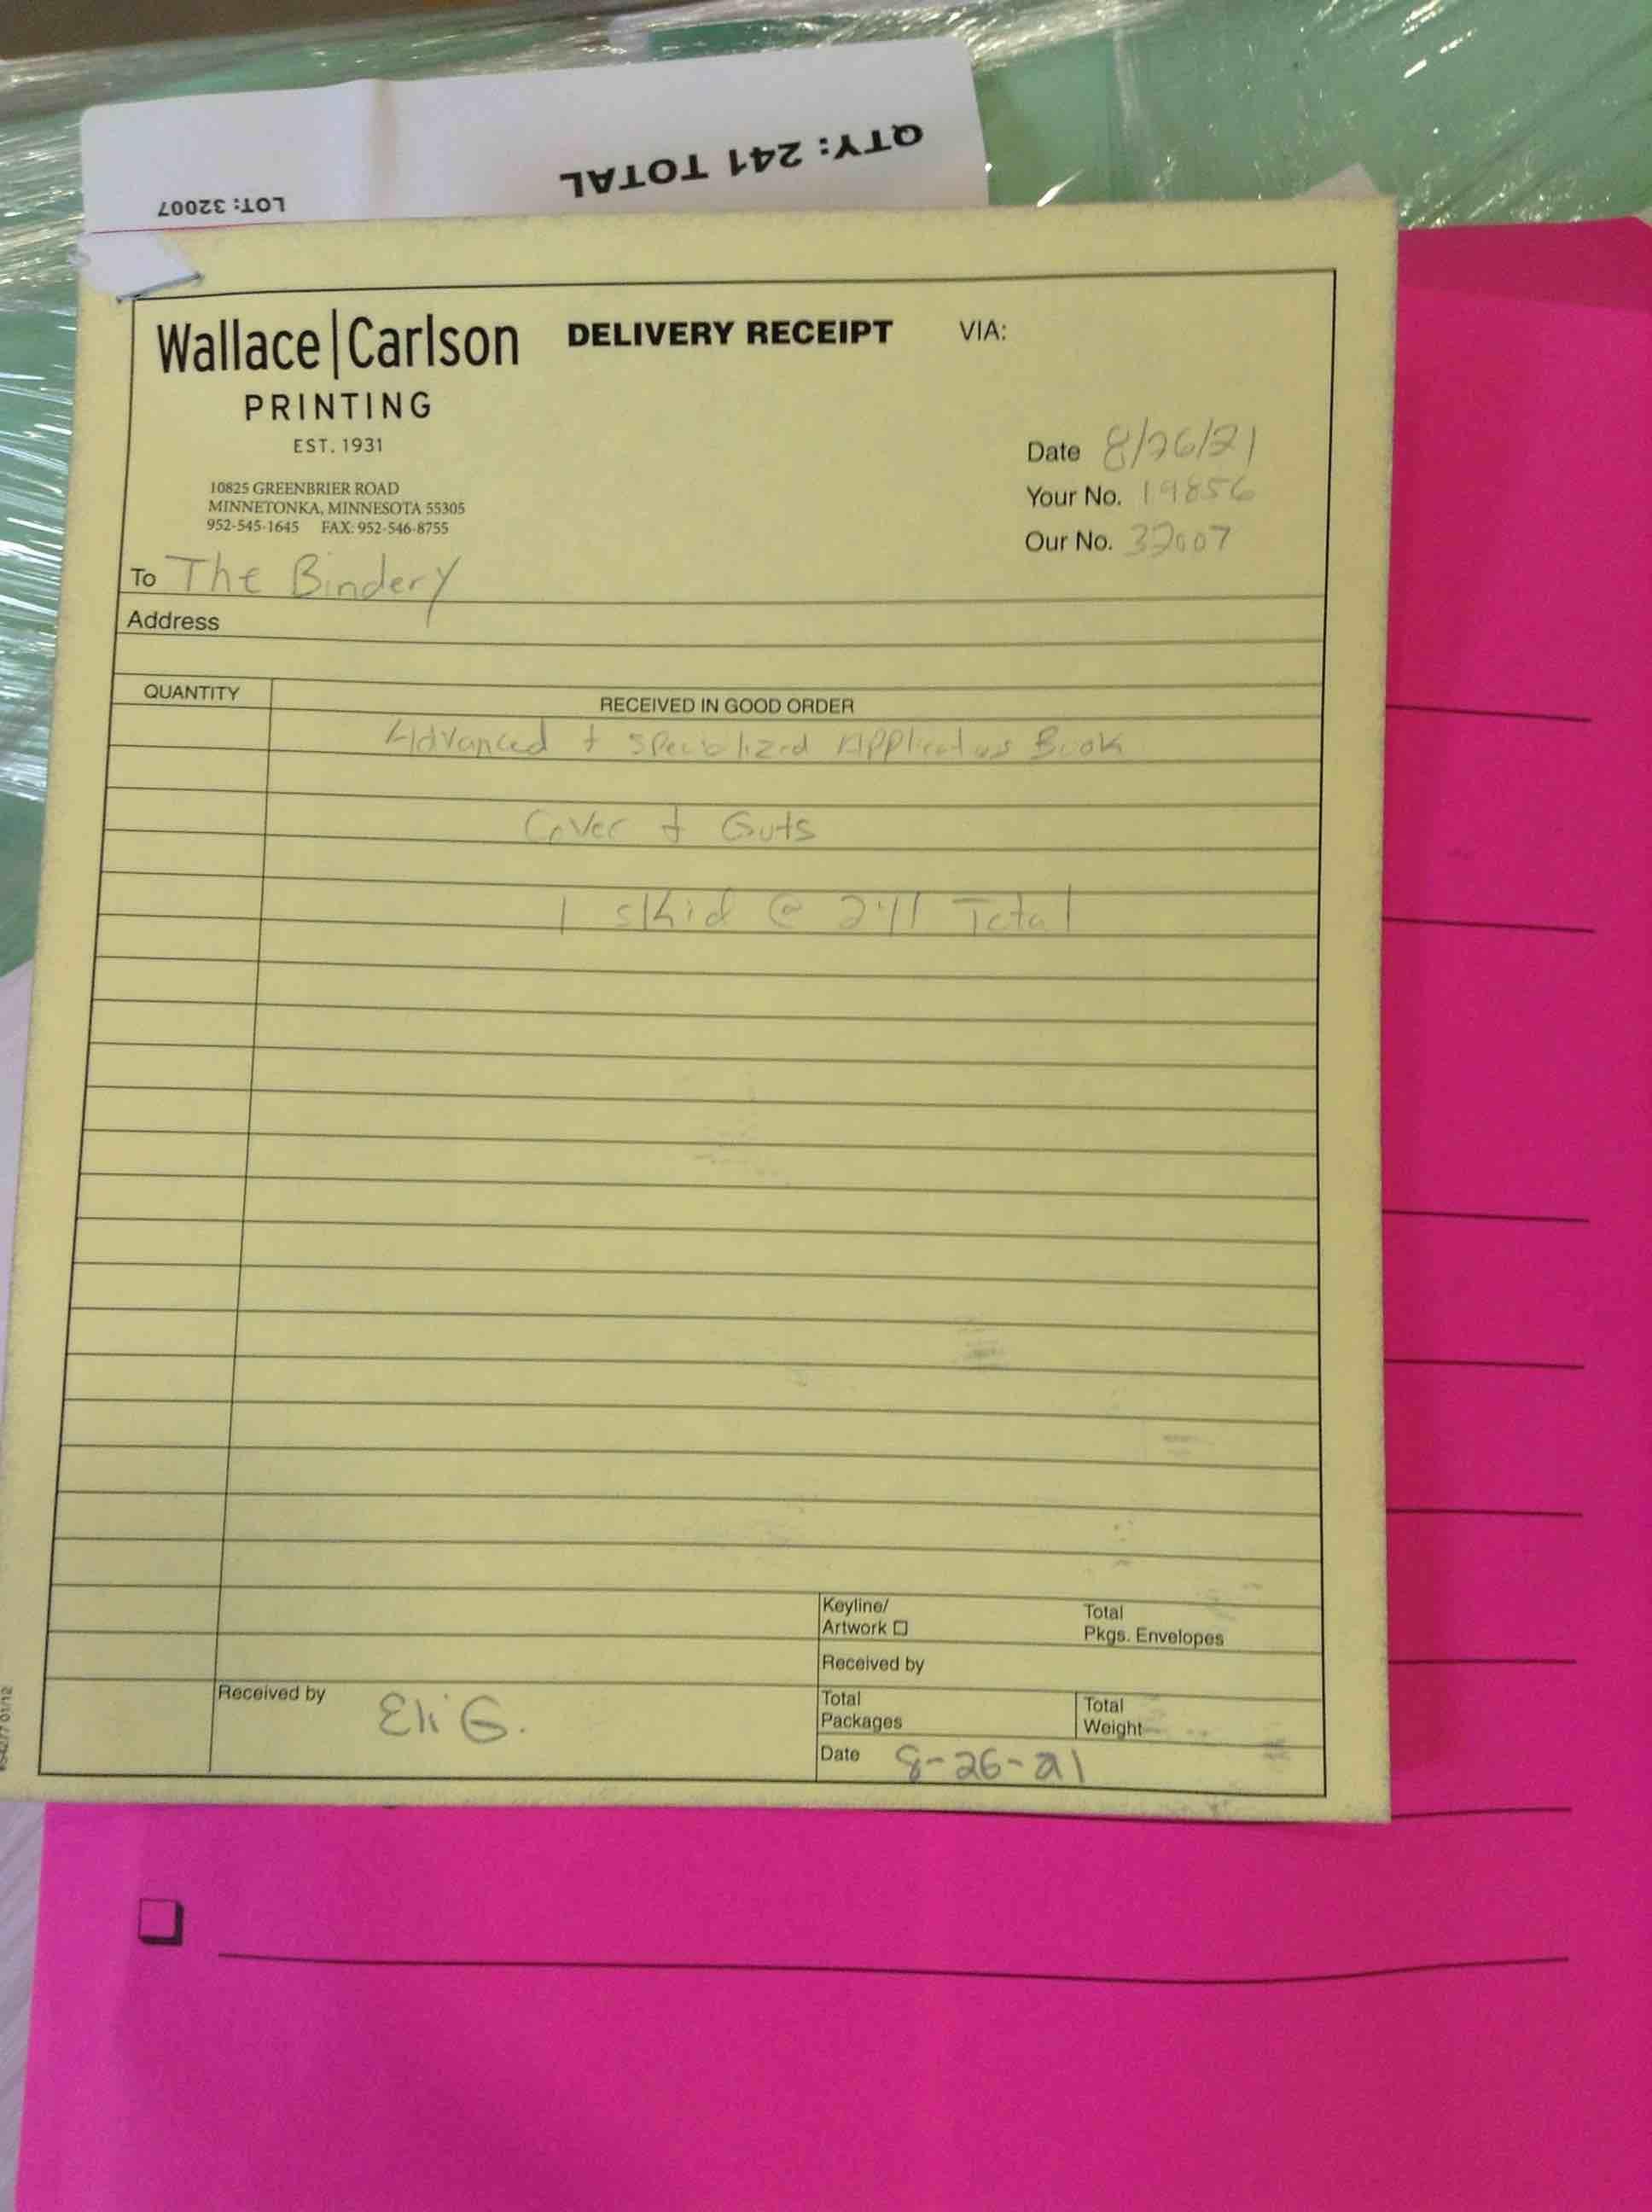 QTY: 241 TOTAL
LOT: 32007
Wallace|Carlson
PRINTING
EST. 1931
10825 GREENBRIER ROAD
MINNETONKA, MINNESOTA 55305
952-545-1645 FAX: 952-546-8755
DELIVERY RECEIPT VIA:
Date 8/26/21
Your No. 19856
Our No. 32007
To The Bindery
Address
QUANTITY RECEIVED IN GOOD ORDER
Advanced + Specialized Applications Book
Cover + Guts
1 skid @ 241 Total
Keyline/
Artwork ☐
Total
Pkgs. Envelopes
Received by
Received by Eli G.
Total
Packages
Total
Weight
Date 8-26-21